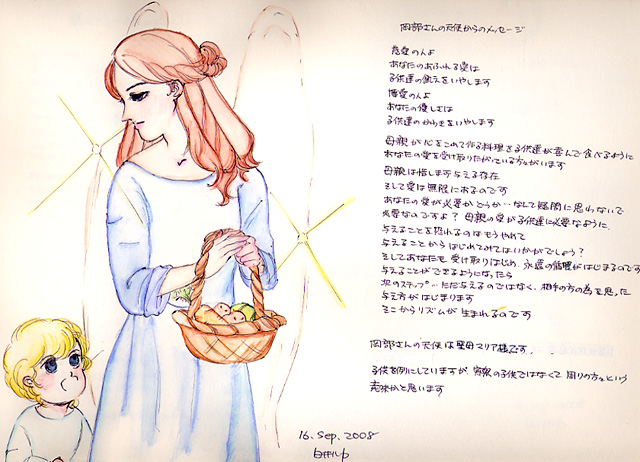 岡部さんの天使からのメッセージ
慈愛の人よ
あなたのあふれる愛は
子供達の飢えをいやします
博愛の人よ
あなたの優しさは
子供達のかわきをいやします
母親が心をこめて作る料理を子供達が喜んで食べるように
あなたの愛を受け取りたがっている方々がいます
母親は惜しまず与える存在
そして愛は無限にあるのです
あなたの愛が必要かどうか…なんて疑問に思わないで
必要なのですよ? 母親の愛が子供達に必要なように
与えることを恐れるのはもうやめて
与えることからはじめてみてはいかがでしょう?
そしてあなたも受け取りはじめ、永遠の循環がはじまるのです
与えることができるようになったら
次のステップ…ただ与えるのではなく、相手の方の為を思った
与え方がはじまります
そこからリズムが生まれるのです
岡部さんの天使は聖母マリア様です…
子供を例にしていますが、実際の子供ではなくて周りの方々という
意味かと思います
16. Sep. 2008